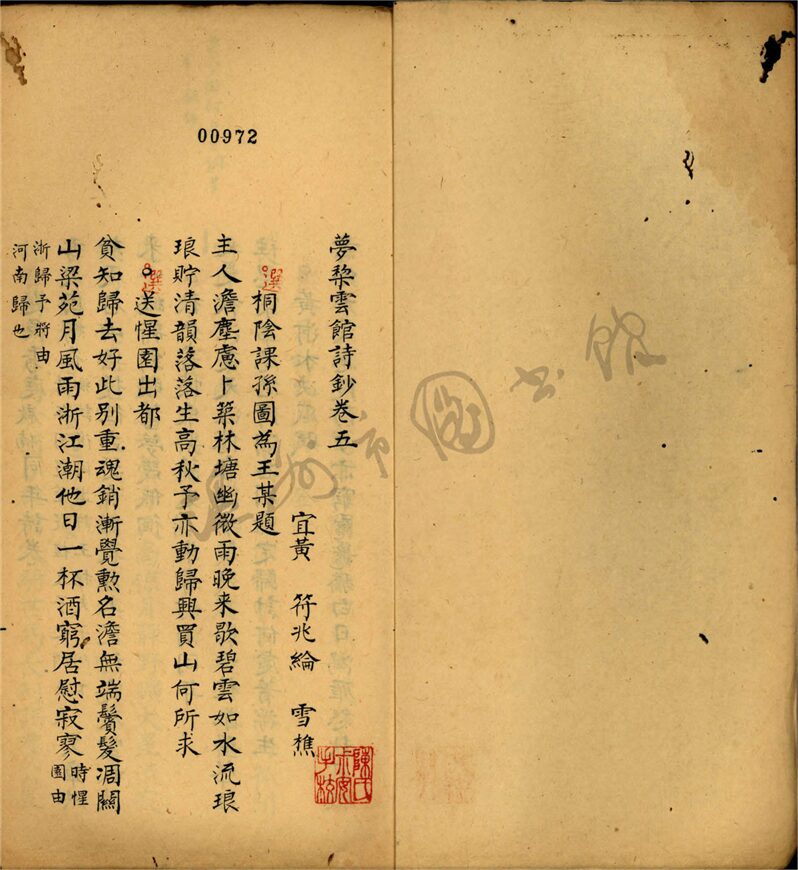 00972
夢棃雲館詩鈔卷五
宜黃 符兆綸 雪樵
選
桐陰課孫圖為王某題
主人澹塵慮卜築林塘幽微雨晚来歇碧雲如水流琅
琅貯清韻落落生高秋予亦動歸興買山何所求
選
送惺園出都
貧知歸去好此别重魂銷漸覺勲名澹無端鬢髮凋關
山梁苑月風雨浙江潮他日一杯酒窮居慰寂寥時惺
園由
浙歸予將由
河南歸也
圖書館